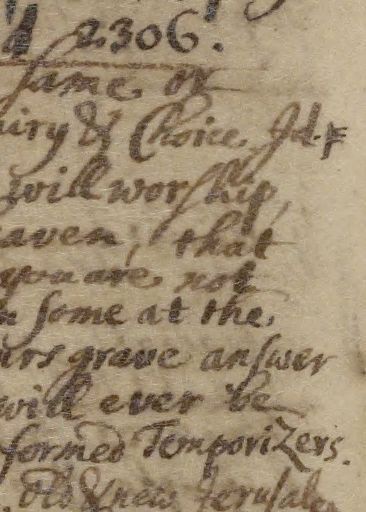 d 2306.
same or
uiry & Choice. Id. p
will worship,
eaven; that
you are not
n some at the
urs grave answer
will ever be
formed Temporizers.
old & new Jerusalem